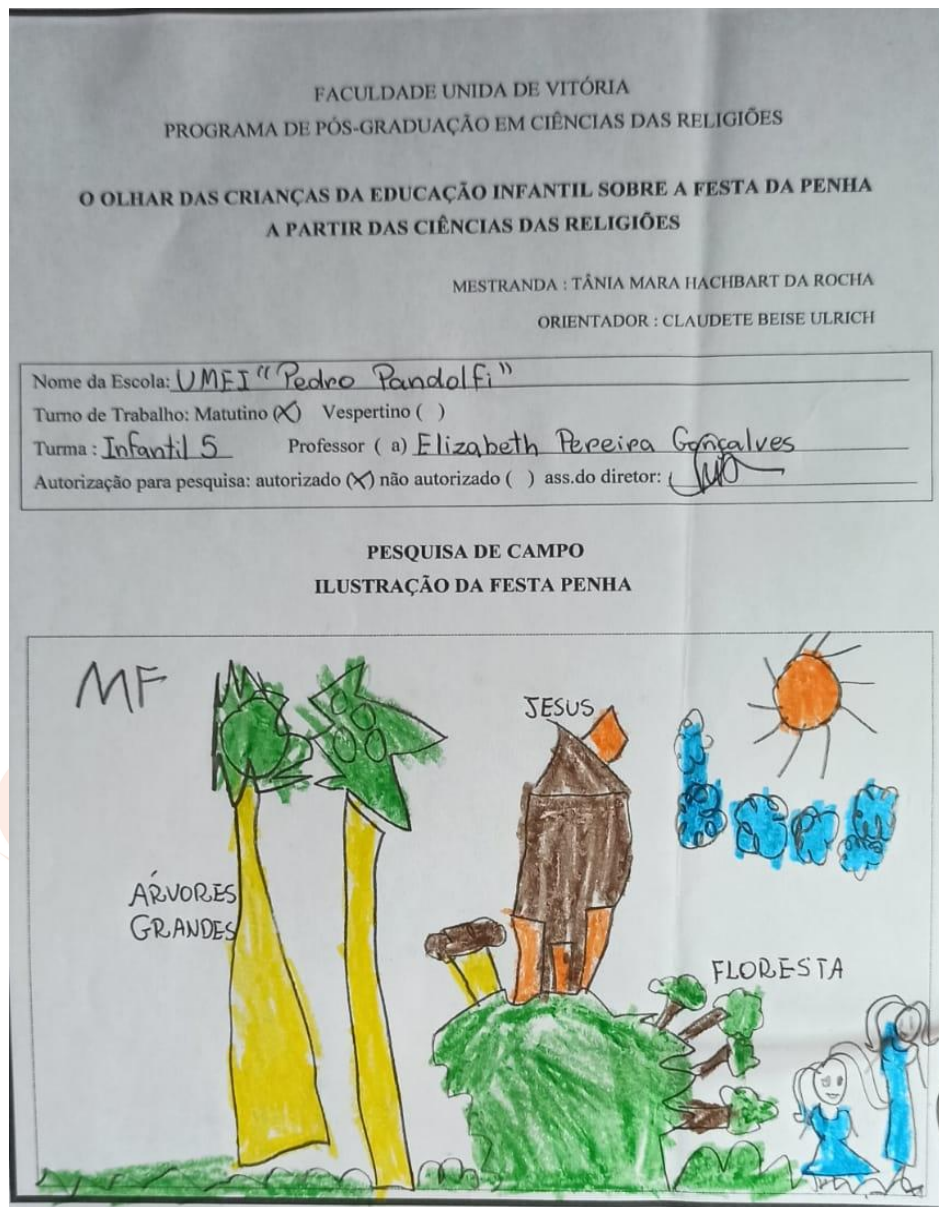 FACULDADE UNIDA DE VITÓRIA
PROGRAMA DE PÓS-GRADUAÇÃO EM CIÊNCIAS DAS RELIGIÕES
O OLHAR DAS CRIANÇAS DA EDUCAÇÃO INFANTIL SOBRE A FESTA DA PENHA
A PARTIR DAS CIÊNCIAS DAS RELIGIÕES
MESTRANDA : TÂNIA MARA HACHBART DA ROCHA
ORIENTADOR : CLAUDETE BEISE ULRICH
Nome da Escola: UMEI "Pedro Pandolfi"
Turno de Trabalho: Matutino (X) Vespertino ( )
Turma : Infantil 5 Professor ( a) Elizabeth Pereira Gonçalves
Autorização para pesquisa: autorizado (X) não autorizado ( ) ass.do diretor:
PESQUISA DE CAMPO
ILUSTRAÇÃO DA FESTA PENHA
MF
JESUS
ÁRVORES
GRANDES
FLORESTA